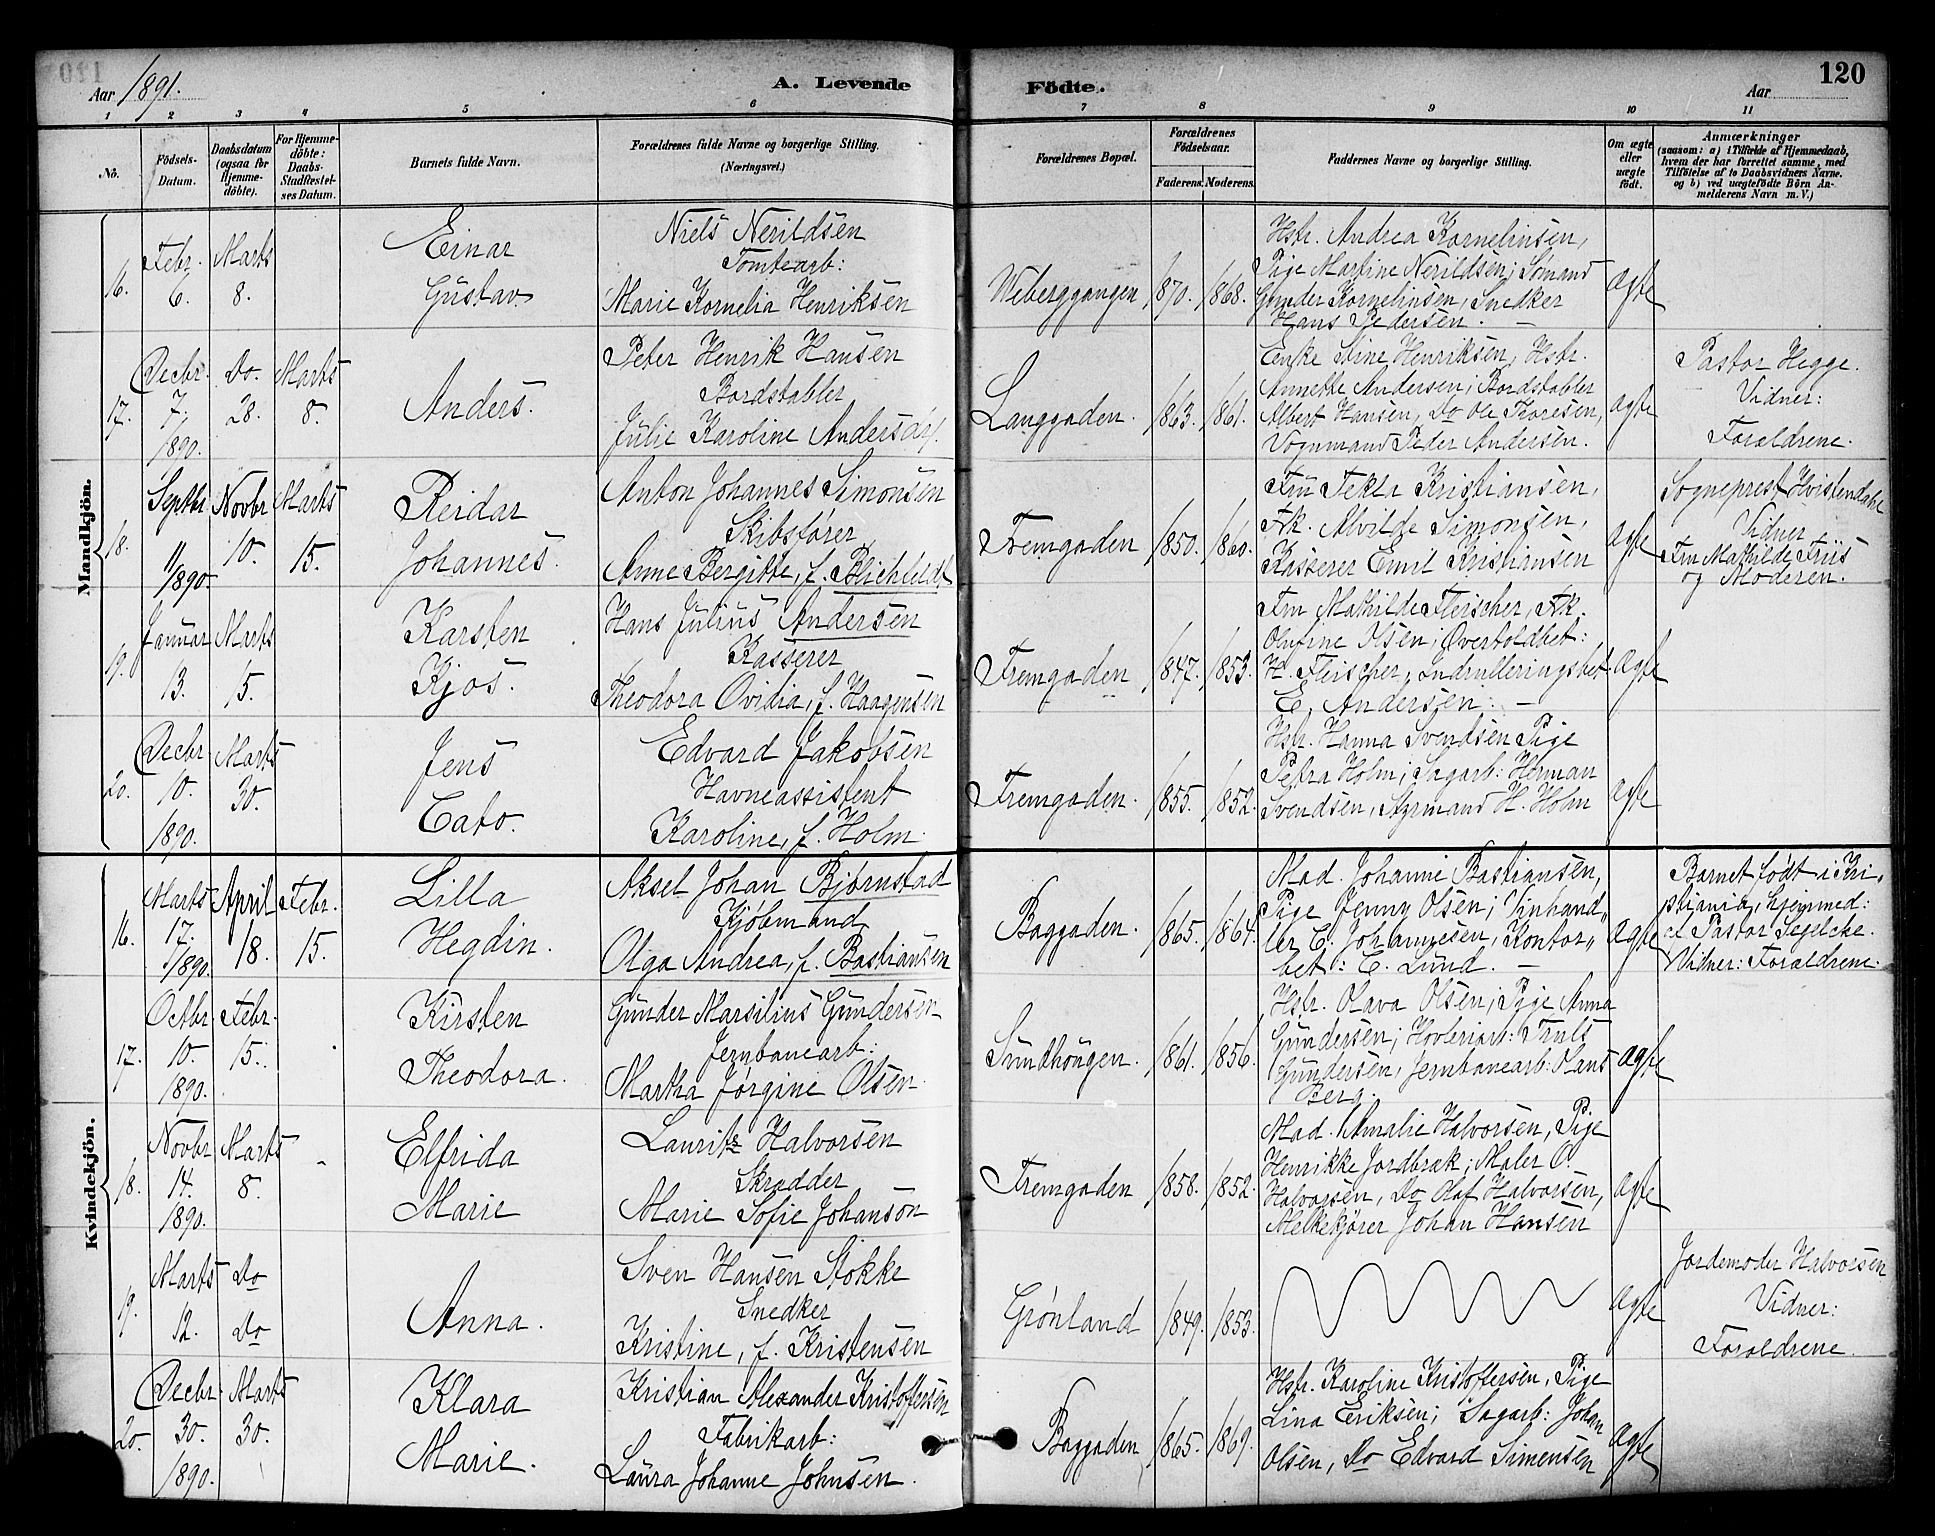 Aar 1891.
A. Levende Födte.
120
Aar
1 2 3 4 5 6 7 8 9 10 11
No.
Födsels-Datum.
Daabsdatum (ogsaa for Hjemme-döbte).
For Hjemme-döbte: Daabs-Stadfæstel-ses Datum.
Barnets fulde Navn.
Forældrenes fulde Navne og borgerlige Stilling. (Næringsvei.)
Forældrenes Bopæl.
Forældrenes Födselsaar.
Faderens. Moderens.
Faddernes Navne og borgerlige Stilling.
Om ægte eller uægte födt.
Anmærkninger
(saasom: a) i Tilfælde af Hjemmedaab, hvem der har forrettet samme, med Tilföielse af to Daabsvidners Navne. og b) ved uægtefödte Börn An-melderens Navn m. V.)
Mandkjön.
16.
Febr. 6.
Marts 8.
Einar Gustav
Niels Nerildsen
Tomtearb:
Marie Kornelia Henriksen
Weberggangen
1870. 1868.
Hstr. Andrea Kornelinsen,
Pige Martine Nerildsen; Sömand
Gunder Kornelinsen, Snedker
Hans Pedersen. —
ægte
17.
Decbr. 7. 1890.
Do. 28.
Marts 8.
Anders.
Peter Henrik Hansen
Bordstabler
Julie Karoline Andersdr.
Langgaden.
1863. 1861.
Enke Stine Henriksen, Hstr.
Annette Andersen; Bordstabler
Albert Hansen, Do Ole Thoresen,
Vognmand Peder Andersen.
ægte
Pastor Hegge.
Vidner:
Forældrene.
18.
Septbr 11/1890
Novbr 10.
Marts 15.
Reidar Johannes.
Anton Johannes Simonsen
Skibsfører
Anne Bergitte, f. Blichfeldt
Fremgaden
1850. 1860.
Fru Tekla Kristiansen,
Frk. Alvilde Simonsen,
Kasserer Emil Kristiansen
ægte
Sogneprest Hvistendahl
Vidner
Fru Mathilde Friis
og Moderen.
19.
Januar 13.
Marts 5.
Karsten Kjos.
Hans Julius Andersen
Kasserer
Theodora Ovidia, f. Haagensen
Fremgaden
1847. 1853.
Fru Mathilde Fleischer, Frk.
Olufine Olsen; Overtoldbet:
H. Fleischer, Indrulleringsbet
E. Andersen. —
ægte
20.
Decbr 10. 1890.
Marts 30.
Jens Cato.
Edvard Jakobsen
Havneassistent
Karoline, f. Holm.
Fremgaden.
1855. 1852.
Hstr. Hanna Svendsen Pige
Petra Holm; Sagarb: Herman
Svendsen, Styrmand H. Holm
ægte
Kvindekjön.
16.
Marts 17. 1890.
April 18.
Febr. 15.
Lilla Hegdin.
Aksel Johan Bjørnstad
Kjöbmand
Olga Andrea, f. Bastiansen
Baggaden.
1865. 1864.
Mad. Johanne Bastiansen,
Pige Jenny Olsen; Vinhand„
ler C. Johannesen, Kontor„
bet: C. Lund. —
ægte
Barnet födt i Kri„
stiania, hjemmed:
af Pastor Jegelcke.
Vidner: Forældrene.
17.
Octbr 10. 1890.
Febr. 15.
Kirsten Theodora.
Gunder Marsilius Gundersen
Jernbanearb:
Martha Jørgine Olsen.
Sundhougen.
1861. 1856.
Hstr. Olava Olsen; Pige Anna
Gundersen; Hovleriarb: Truls
Gundersen, Jernbanearb: Hans
Berg.
ægte
18.
Novbr 14. 1890.
Marts 8.
Elfrida Marie
Lauritz Halvorsen
Skrædder
Marie Sofie Johanson
Fremgaden
1858. 1852.
Mad. Amalie Halvorsen, Pige
Henrikke Jordbræk; Maler O.
Halvorsen, Do Olaf Halvorsen,
Melkekjører Johan Hansen
ægte
19.
Marts 12.
Do Do
Anna.
Sven Hansen Stokke
Snedker
Kristine, f. Kristensen
Grønland
1849. 1853.
ægte
Jordemoder Halvorsen
Vidner:
Forældrene.
20.
Decbr 30. 1890.
Marts 30.
Klara Marie.
Kristian Alexander Kristoffersen
Fabrikarb:
Laura Johanne Johnsen.
Baggaden
1865. 1869.
Hstr. Karoline Kristoffersen, Pige
Lina Eriksen; Sagarb: Johan
Olsen, Do Edvard Simensen
ægte